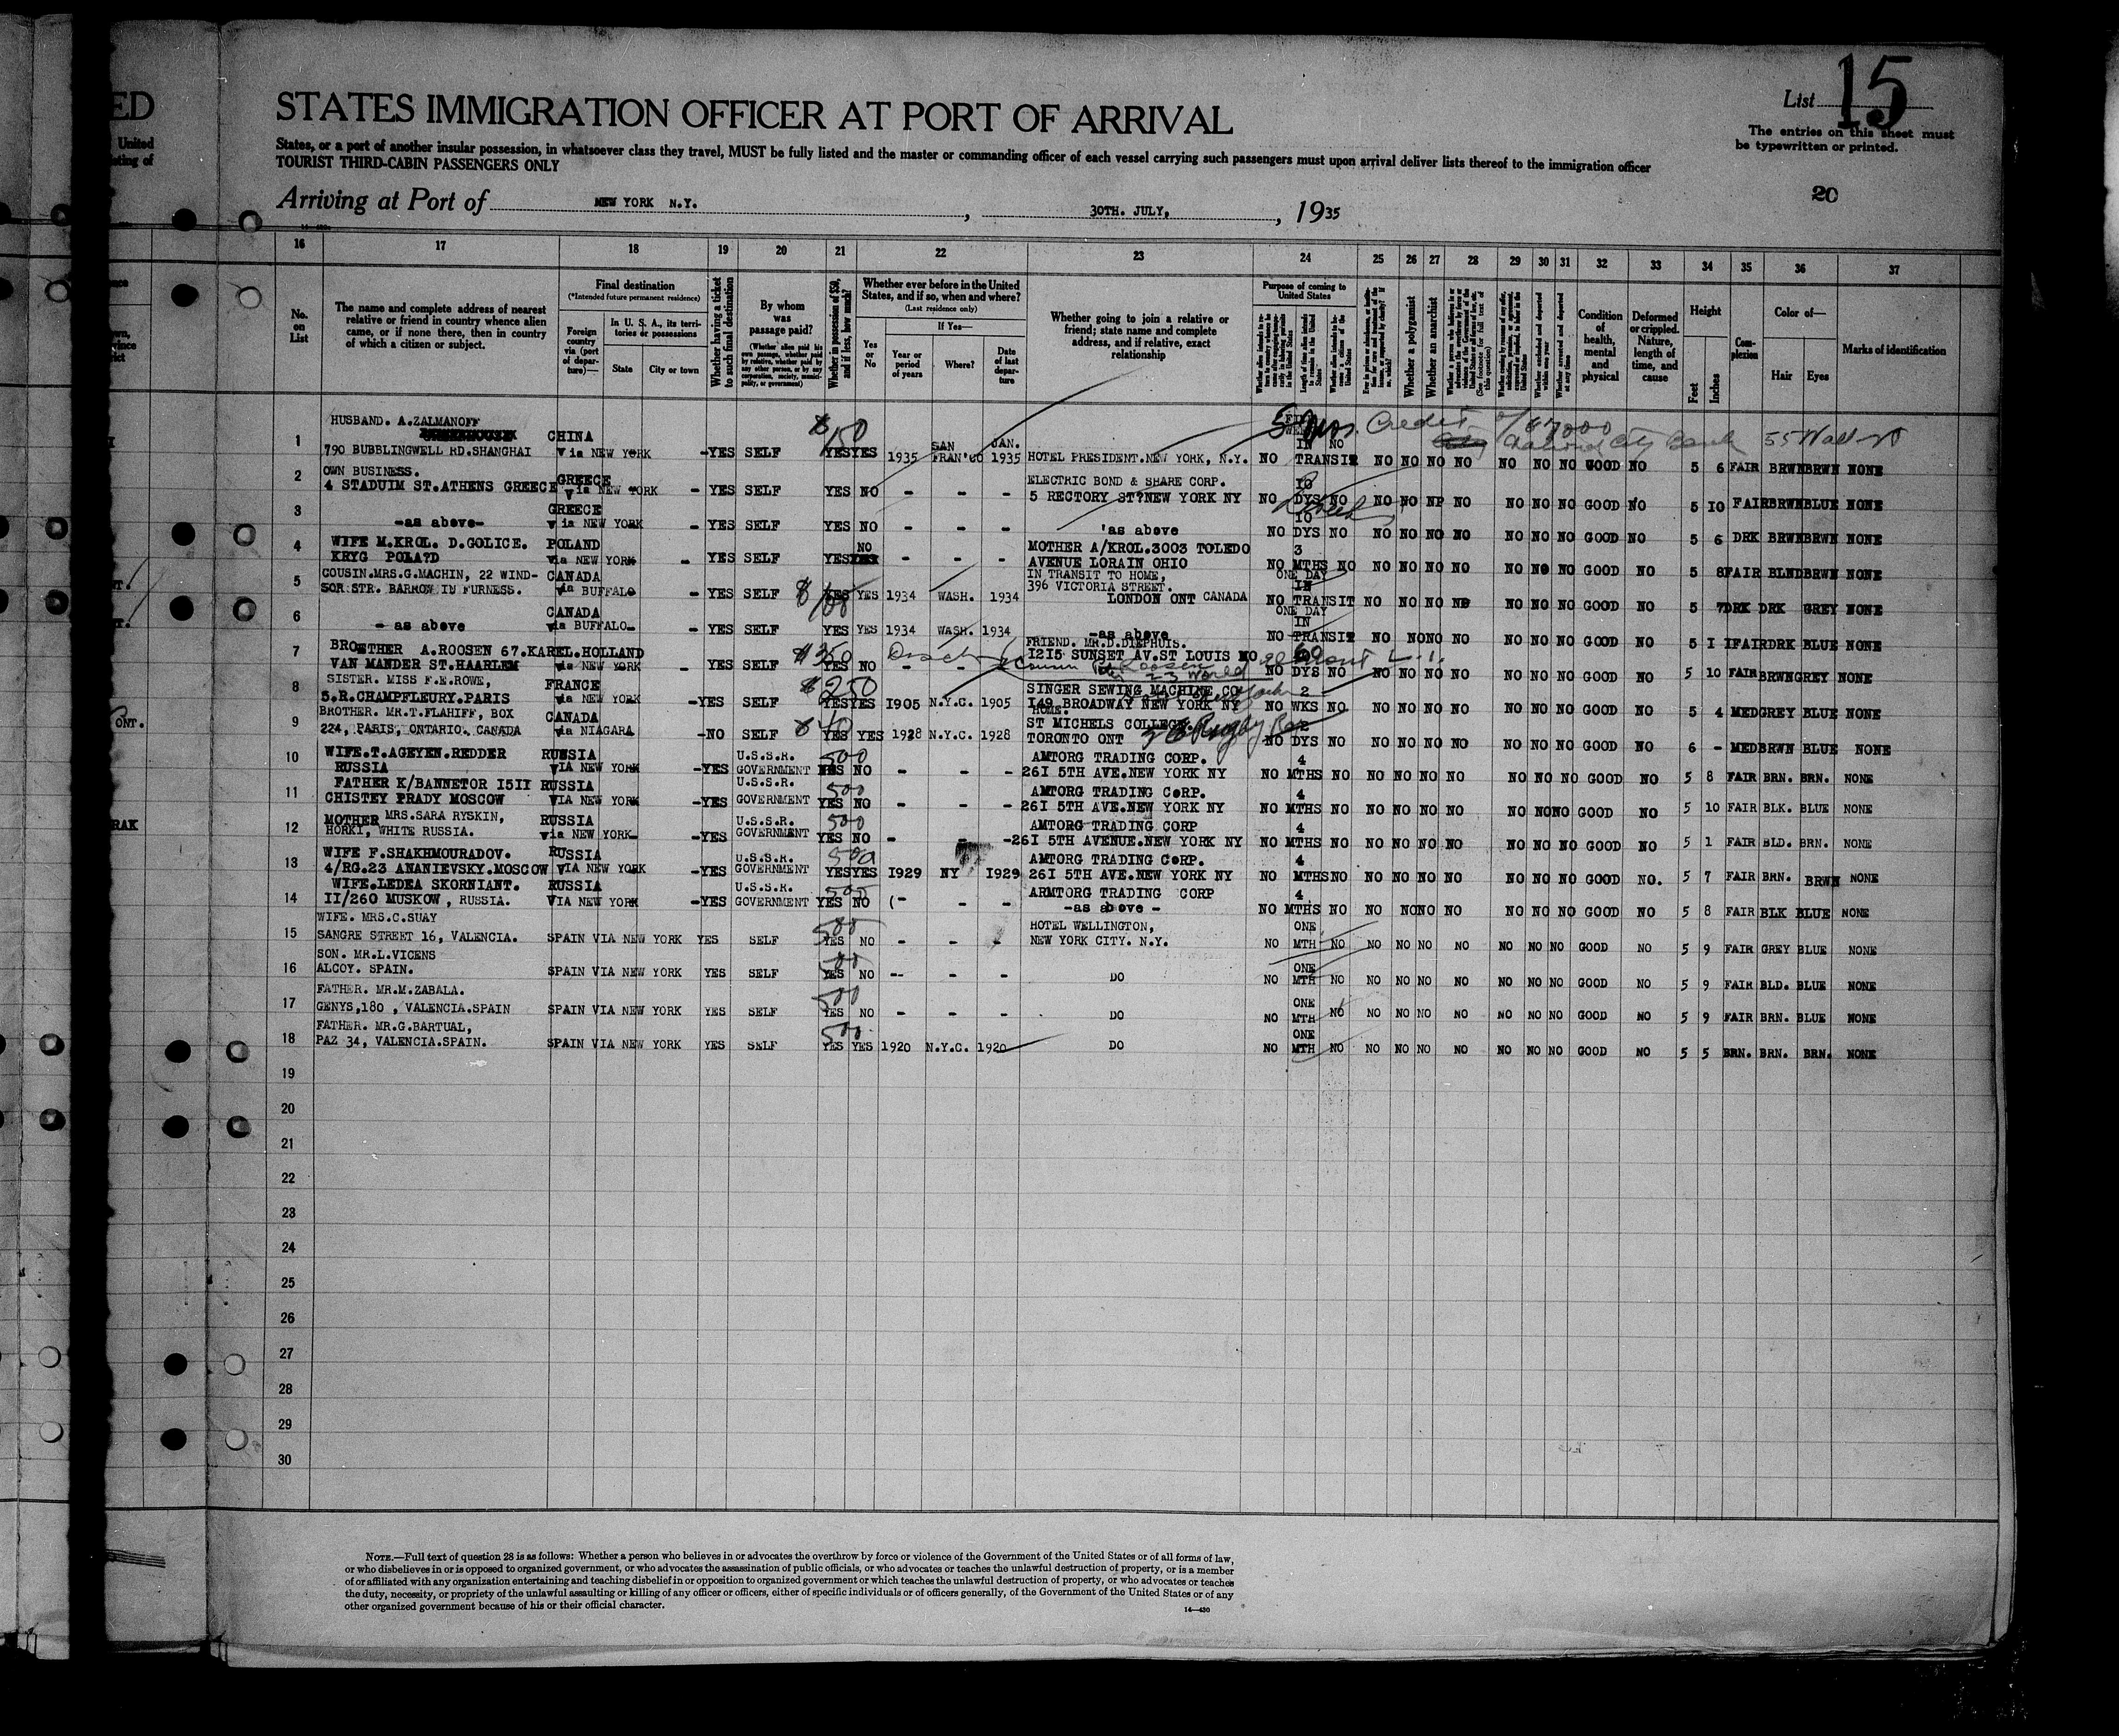 ED
United
STATES IMMIGRATION OFFICER AT PORT OF ARRIVAL
List 15
The entries on this sheet must
be typewritten or printed.
States, or a port of another insular possession, in whatsoever class they travel, MUST be fully listed and the master or commanding officer of each vessel carrying such passengers must upon arrival deliver lists thereof to the immigration officer
TOURIST THIRD-CABIN PASSENGERS ONLY
20
Arriving at Port of NEW YORK N.Y. , 30TH. JULY, , 1935
16 17 18 19 20 21 22 23 24 25 26 27 28 29 30 31 32 33 34 35 36 37
No. on List
The name and complete address of nearest relative or friend in country whence alien came, or if none there, then in country of which a citizen or subject.
Final destination
(*Intended future permanent residence)
Foreign country via (port of departure)—
In U. S. A., its territories or possessions
State
City or town
Whether having a ticket to such final destination
By whom was passage paid?
(Whether alien paid his own passage, whether paid by relative, whether paid by any other person, or by any corporation, society, municipality, or government)
Whether in possession of $50, and if less, how much?
Whether ever before in the United States, and if so, when and where?
(Last residence only)
Yes or No
If Yes—
Year or period of years
Where?
Date of last departure
Whether going to join a relative or friend; state name and complete address, and if relative, exact relationship
Purpose of coming to United States
Whether a polygamist
Whether an anarchist
Condition of health, mental and physical
Deformed or crippled. Nature, length of time, and cause
Height
Feet
Inches
Complexion
Color of—
Hair
Eyes
Marks of identification
HUSBAND. A.ZALMANOFF
1 790 BUBBLINGWELL RD.SHANGHAI CHINA via NEW YORK -YES SELF $150 YES YES 1935 SAN FRAN'CO JAN. 1935 HOTEL PRESIDENT.NEW YORK, N.Y. NO IN TRANSIT NO NO NO NO NO NO NO NO GOOD NO 5 6 FAIR BRWN BRWN NONE
Credit 55 Wall St
OWN BUSINESS.
2 4 STADUIM ST.ATHENS GREECE GREECE via NEW YORK - YES SELF YES NO - - - ELECTRIC BOND & SHARE CORP. 5 RECTORY ST?NEW YORK NY NO 10 DYS NO NO NO NP NO NO NO NO GOOD NO 5 10 FAIR BRWN BLUE NONE
3 -as above- GREECE via NEW YORK - YES SELF YES NO - - - 'as above NO 10 DYS NO NO NO NO NO NO NO NO GOOD NO 5 6 DRK BRWN BRWN NONE
4 WIFE M.KROL. D.GOLICE. KRYG POLA?D POLAND via NEW YORK - YES SELF YES NO - - - MOTHER A/KROL.3003 TOLEDO AVENUE LORAIN OHIO NO 3 MTHS NO NO NO NO NO NO NO NO GOOD NO 5 8 FAIR BLND BRWN NONE
5 COUSIN.MRS.G.MACHIN, 22 WIND-SOR STR. BARROW IN FURNESS. CANADA via BUFFALO - YES SELF YES YES 1934 WASH. 1934 IN TRANSIT TO HOME, 396 VICTORIA STREET. LONDON ONT CANADA NO ONE DAY IN TRANSIT NO NO NO NO NO NO NO GOOD NO 5 7 DRK DRK GREY NONE
6 - as above CANADA via BUFFALO - YES SELF YES YES 1934 WASH. 1934 -as above NO ONE DAY IN TRANSIT NO NO NO NO NO NO NO GOOD NO 5 11 FAIR DRK BLUE NONE
7 BROETHER A.ROOSEN 67.KAREL VAN MANDER ST.HAARLEM HOLLAND via NEW YORK - YES SELF $350 YES NO - - FRIEND. MR.D.DIEPHUIS. 1215 SUNSET AV.ST LOUIS MO NO 60 DYS NO NO NO NO NO NO NO NO GOOD NO 5 10 FAIR BRWN GREY NONE
8 SISTER. MISS F.E.ROWE, 5.R.CHAMPFLEURY.PARIS FRANCE via NEW YORK -YES SELF $250 YES YES 1905 N.Y.C. 1905 SINGER SEWING MACHINE CO 149 BROADWAY NEW YORK NY NO 2 WKS NO NO NO NO NO NO NO NO GOOD NO 5 4 MED GREY BLUE NONE
9 BROTHER. MR.T.FLAHIFF, BOX 224, PARIS, ONTARIO. CANADA CANADA via NIAGARA -NO SELF $40 YES YES 1928 N.Y.C. 1928 HOME. ST MICHELS COLLEGE. TORONTO ONT NO 2 DYS NO NO NO NO NO NO NO NO GOOD NO 6 - MED BRWN BLUE NONE
10 WIFE.T.AGEYEN.REDDER RUSSIA RUSSIA VIA NEW YORK -YES U.S.S.R. GOVERNMENT 500 YES NO - - - AMTORG TRADING CORP. 261 5TH AVE.NEW YORK NY NO 4 MTHS NO NO NO NO NO NO NO NO GOOD NO 5 8 FAIR BRN. BRN. NONE
11 FATHER K/BANNETOR 1511 CHISTEY PRADY MOSCOW RUSSIA VIA NEW YORK -YES U.S.S.R. GOVERNMENT 500 YES NO - - - AMTORG TRADING CORP. 261 5TH AVE.NEW YORK NY NO 4 MTHS NO NO NO NO NO NO NO NO GOOD NO 5 10 FAIR BLK. BLUE NONE
12 MOTHER MRS.SARA RYSKIN, HORKI, WHITE RUSSIA. RUSSIA via NEW YORK -YES U.S.S.R. GOVERNMENT 500 YES NO - - - AMTORG TRADING CORP 261 5TH AVENUE.NEW YORK NY NO 4 MTHS NO NO NO NO NO NO NO NO GOOD NO 5 1 FAIR BLD. BRN. NONE
13 WIFE F.SHAKHMOURADOV. 4/RG.23 ANANIEVSKY.MOSCOW RUSSIA VIA NEW YORK -YES U.S.S.R. GOVERNMENT 500 YES YES 1929 NY 1929 AMTORG TRADING CORP. 261 5TH AVE.NEW YORK NY NO 4 MTHS NO NO NO NO NO NO NO NO GOOD NO. 5 7 FAIR BRN. BRWN NONE
14 WIFE.LEDEA SKORNIANT. II/260 MUSKOW, RUSSIA. RUSSIA VIA NEW YORK -YES U.S.S.R. GOVERNMENT 500 YES NO (- - - ARMTORG TRADING CORP -as above - NO 4 MTHS NO NO NO NO NO NO NO NO GOOD NO 5 8 FAIR BLK BLUE NONE
15 WIFE. MRS.C.SUAY SANGRE STREET 16, VALENCIA. SPAIN VIA NEW YORK YES SELF 500 YES NO - - - HOTEL WELLINGTON, NEW YORK CITY. N.Y. NO ONE MTH NO NO NO NO NO NO NO NO GOOD NO 5 9 FAIR GREY BLUE NONE
16 SON. MR.L.VICENS ALCOY. SPAIN. SPAIN VIA NEW YORK YES SELF 500 YES NO -- - - DO NO ONE MTH NO NO NO NO NO NO NO NO GOOD NO 5 9 FAIR BLD. BLUE NONE
17 FATHER. MR.M.ZABALA. GENYS,180 , VALENCIA.SPAIN SPAIN VIA NEW YORK YES SELF 500 YES NO - - - DO NO ONE MTH NO NO NO NO NO NO NO NO GOOD NO 5 9 FAIR BRN. BLUE NONE
18 FATHER. MR.G.BARTUAL, PAZ 34, VALENCIA.SPAIN. SPAIN VIA NEW YORK YES SELF 500 YES YES 1920 N.Y.C. 1920 DO NO ONE MTH NO NO NO NO NO NO NO NO GOOD NO 5 5 BRN. BRN. BRN. NONE
19
20
21
22
23
24
25
26
27
28
29
30
NOTE.—Full text of question 28 is as follows: Whether a person who believes in or advocates the overthrow by force or violence of the Government of the United States or of all forms of law,
or who disbelieves in or is opposed to organized government, or who advocates the assassination of public officials, or who advocates or teaches the unlawful destruction of property, or is a member
of or affiliated with any organization entertaining and teaching disbelief in or opposition to organized government or which teaches the unlawful destruction of property, or who advocates or teaches
the duty, necessity, or propriety of the unlawful assaulting or killing of any officer or officers, either of specific individuals or of officers generally, of the Government of the United States or of any
other organized government because of his or their official character.
14—430